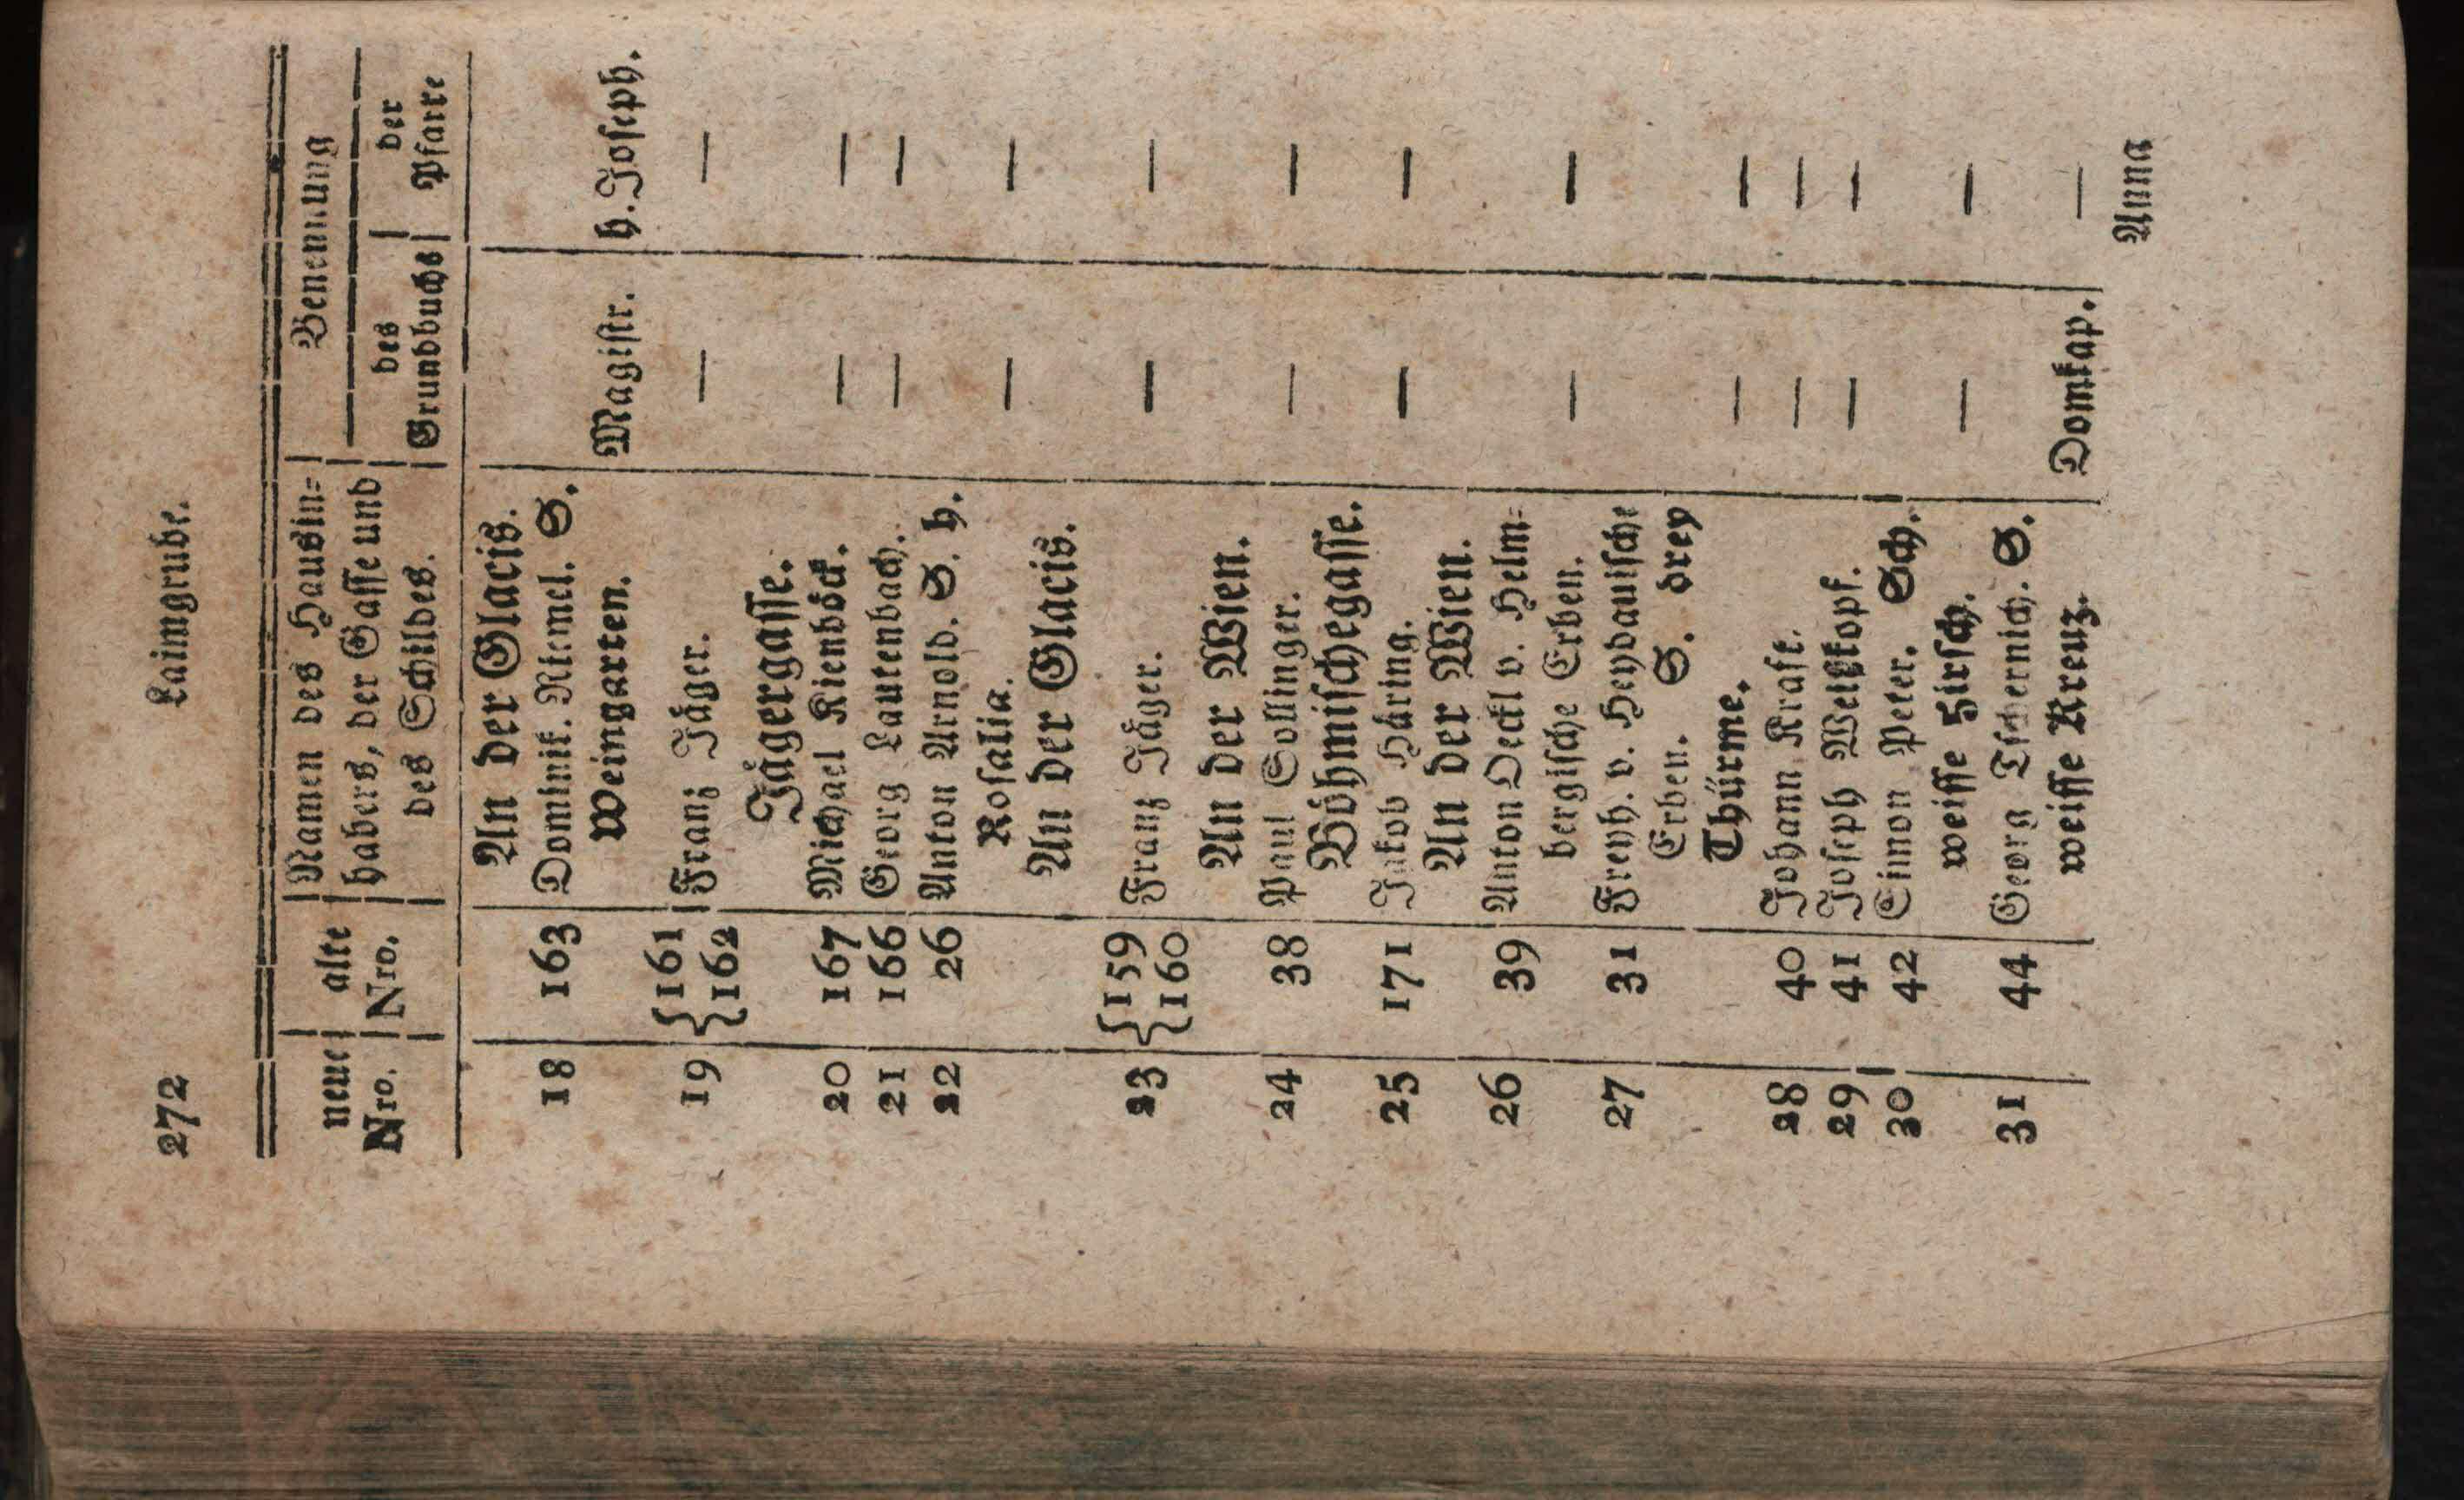 272 Laimgrube.
neue | alte | Namen des Hausin= | Benennung
Nro. | Nro. | habers, der Gasse und | des | der
des Schildes. | Grundbuchs | Pfarre
An der Glacis.
18 163 Dominik. Riemel. S.
Weingarten. Magistr. h. Joseph.
19 {161 Franz Jäger. — —
{162
Jägergasse.
20 167 Michael Kienböck. — —
21 166 Georg Lautenbach. — —
22 26 Anton Arnold. S. h.
Rosalia. — —
An der Glacis.
23 {159 Franz Jäger. — —
{160
An der Wien.
24 38 Paul Sollinger. — —
Böhmischegasse.
25 171 Jakob Häring. — —
An der Wien.
26 39 Anton Deckl v. Helm=
bergische Erben. — —
27 31 Freyh. v. Heydauische
Erben. S. drey
Thürme. — —
28 40 Johann Kraft. — —
29 41 Joseph Weißkopf. — —
30 42 Simon Peter. Sch.
weisse Hirsch. — —
31 44 Georg Tschernich. S.
weisse Kreuz. Domkap. —
Anna